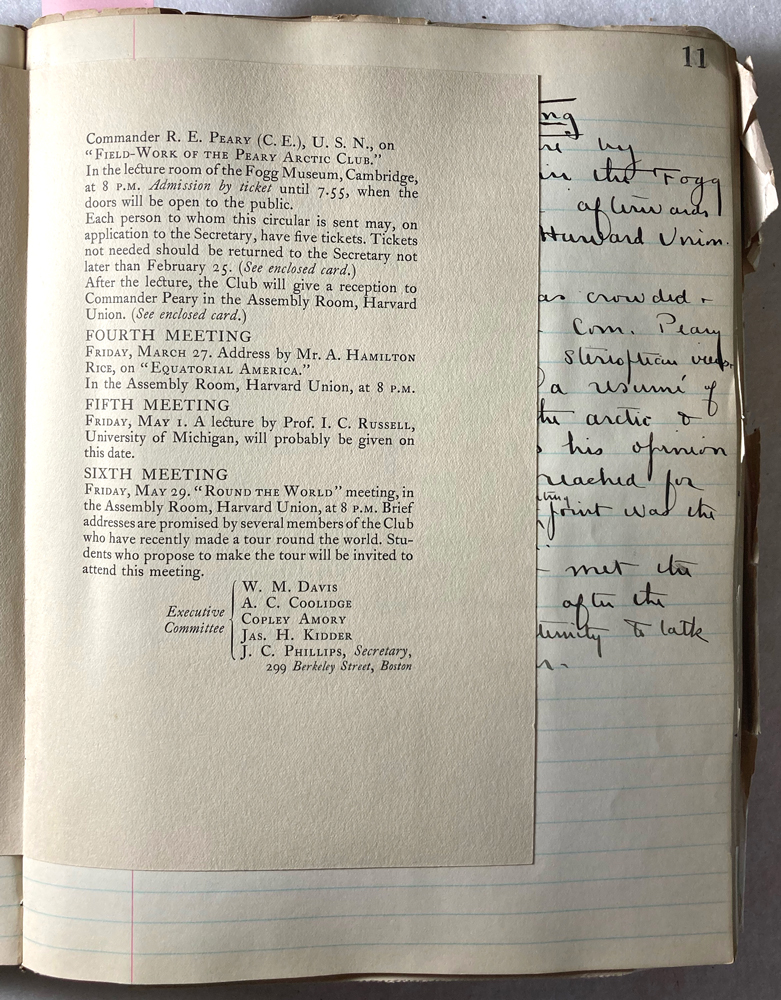 11
Commander R. E. Peary (C. E.), U. S. N., on
“Field-Work of the Peary Arctic Club.”
In the lecture room of the Fogg Museum, Cambridge,
at 8 P.M. Admission by ticket until 7.55, when the
doors will be open to the public.
Each person to whom this circular is sent may, on
application to the Secretary, have five tickets. Tickets
not needed should be returned to the Secretary not
later than February 25. (See enclosed card.)
After the lecture, the Club will give a reception to
Commander Peary in the Assembly Room, Harvard
Union. (See enclosed card.)
FOURTH MEETING
Friday, March 27. Address by Mr. A. Hamilton
Rice, on “Equatorial America.”
In the Assembly Room, Harvard Union, at 8 P.M.
FIFTH MEETING
Friday, May 1. A lecture by Prof. I. C. Russell,
University of Michigan, will probably be given on
this date.
SIXTH MEETING
Friday, May 29. “Round the World” meeting, in
the Assembly Room, Harvard Union, at 8 P.M. Brief
addresses are promised by several members of the Club
who have recently made a tour round the world. Stu-
dents who propose to make the tour will be invited to
attend this meeting.
Executive
Committee
W. M. Davis
A. C. Coolidge
Copley Amory
Jas. H. Kidder
J. C. Phillips, Secretary,
299 Berkeley Street, Boston
ng
by
in the Fogg
afterwards
Harvard Union.
as crowded +
Com. Peary
sterioptican views
a resumé of
the arctic &
his opinion
reached for
point was the
met the
after the
to talk